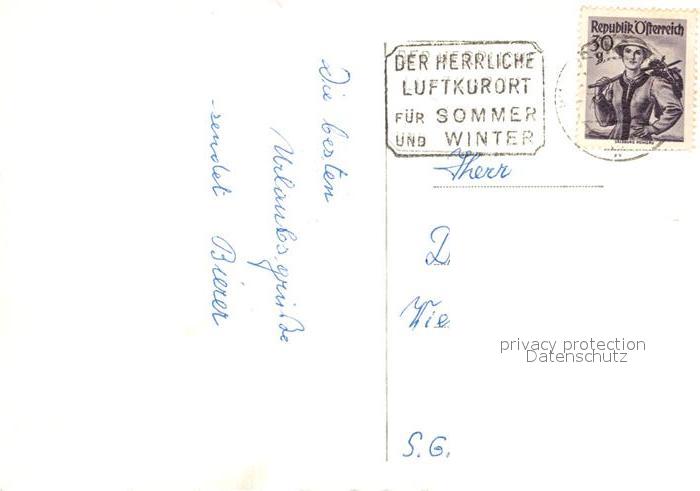 Die besten
Urlaubsgrüße
sendet Bierer
DER HERRLICHE
LUFTKURORT
FÜR SOMMER
UND WINTER
Republik Österreich
30
g
Herr
D
Wie
privacy protection
Datenschutz
S.G.